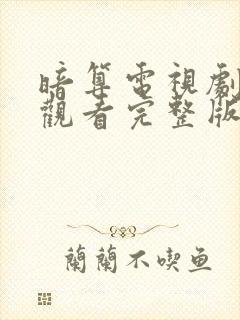 暗算電視劇
觀看完整版
蘭蘭不喫鱼